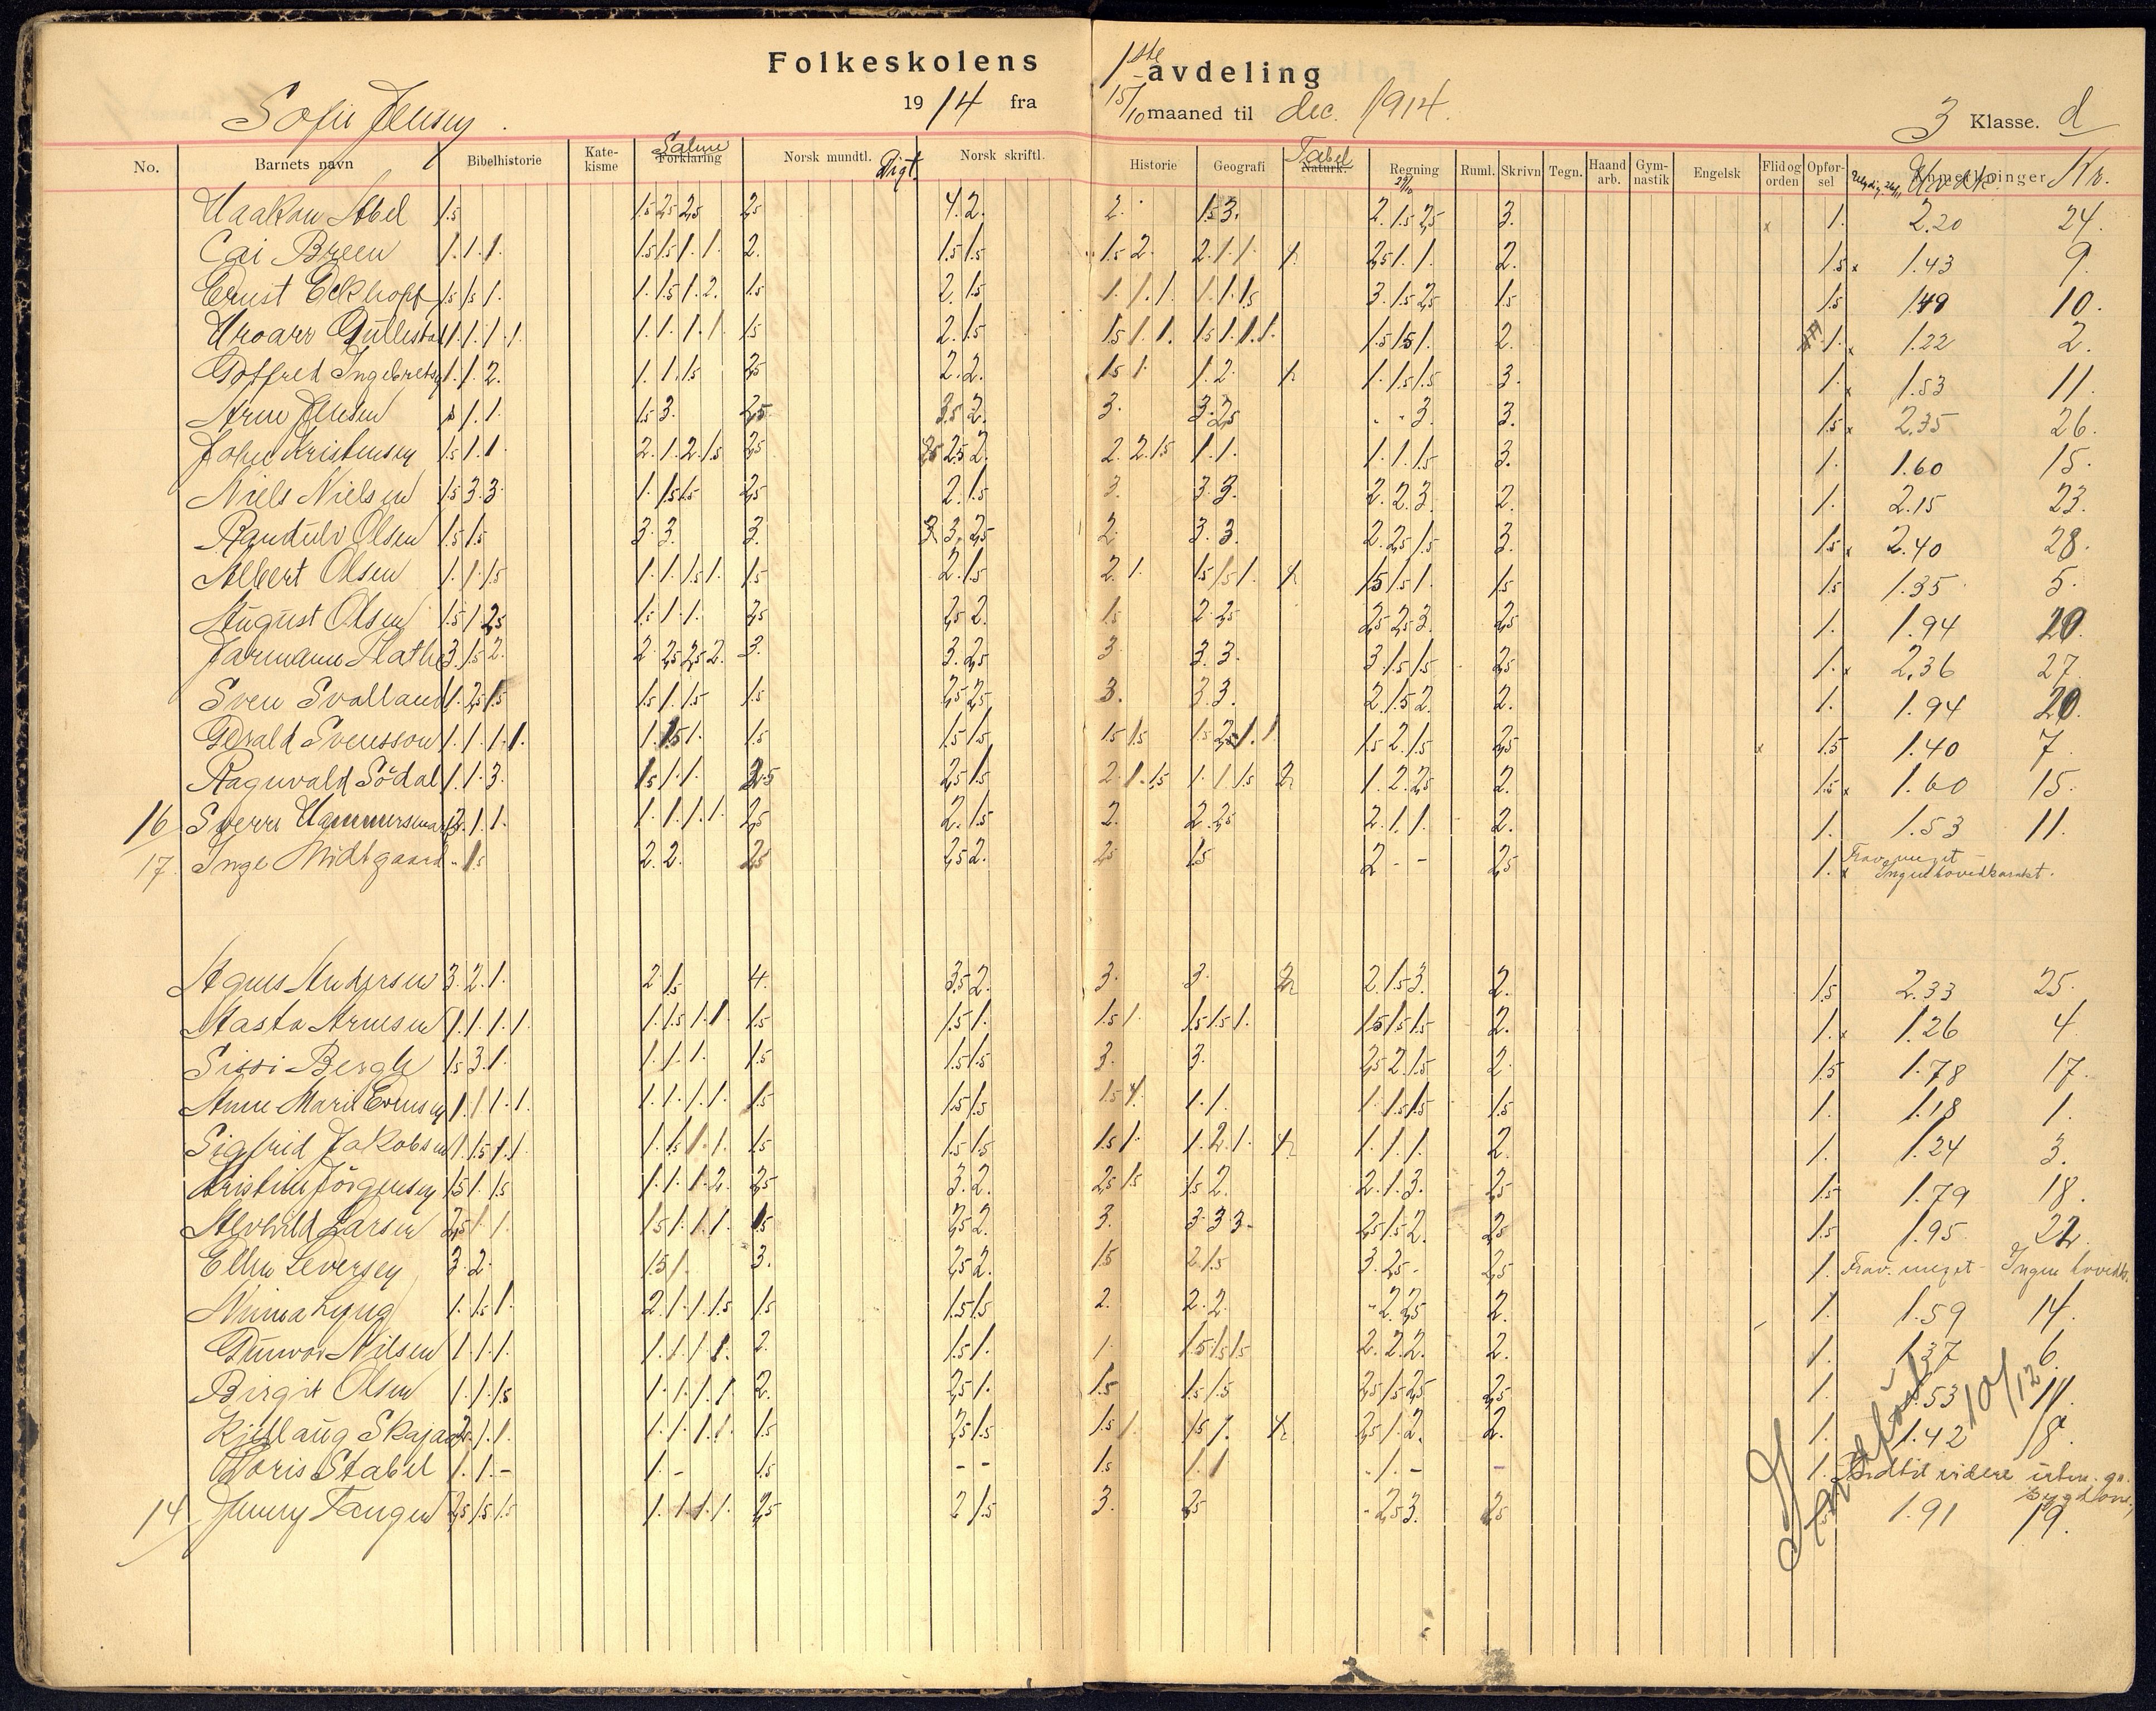 Folkeskolens 1ste avdeling
Sofie Jensen. 1914 fra 15/10 maaned til dec. 1914. 3 Klasse. d
No. Barnets navn Bibelhistorie Kate-kisme Forklaring Salme Norsk mundtl. Digt. Norsk skriftl. Historie Geografi Naturk. Tabel Regning Ruml. Skrivn Tegn. Haand arb. Gym-nastik Engelsk Flid og orden Opfør-sel Anmerkninger Nr.
Haakon Abel 1.5 1.5 2.5 2.5 2.5 4. 2. 2. 1.5 3. 2. 1.5 2.5 3. x 1. 2.20 24.
Cai Breen 1. 1. 1. 1.5 1.5 1. 1. 2. 1.5 1.5 1.5 2. 2. 1. 1. 2.5 1. 1. 2. 1.5 x 1.43 9.
Ernst Eckhoff 1.5 1.5 1. 1. 1.5 1. 2. 1.5 2. 1.5 1. 1. 1. 1. 1. 1.5 3. 1.5 2.5 1.5 1.5 1.49 10.
Hroarr Gullestad 1. 1. 1. 1. 1. 1. 1. 1. 1.5 2. 1.5 1.5 1. 1. 1.5 1. 1. 1. 1.5 1.5 1. 2. 1. x 1.22 2.
Gotfred Ingebretsen 1. 1. 2. 1. 1. 1.5 2.5 2. 2. 1.5 1. 1. 2. 1. 1.5 1.5 3. 1. x 1.53 11.
Arne Jensen 1. 1. 1.5 3. 2.5 3.5 2. 3. 3. 2.5 - - 3. 3. 1.5 x 2.35 26.
John Kristensen 1.5 1. 1. 2. 1. 2. 1.5 2.5 2.5 2. 2. 2. 1.5 1. 1. 1. 1. 1.5 3. 1. 1.60 15.
Niels Nielsen 1.5 3. 3. 1. 1.5 1.5 2.5 2. 1.5 3. 3. 3. 2. 2. 3. 2. 1. 2.15 23.
Randulv Olsen 1.5 1.5 3. 3. 3. 3. 2.5 2. 3. 3. 2. 2.5 1.5 3. 1.5 x 2.40 28.
Albert Olsen 1. 1. 1.5 1. 1. 1.5 1. 1.5 2. 1.5 2. 1. 1.5 1.5 1. 1.5 1.5 1. 1.5 1.5 1.35 5.
August Olsen 1.5 1 2.5 1.5 1. 1. 2.5 2.5 2. 1.5 2. 2.5 2.5 2.5 3. 2.5 1. 1.94 20.
Jarmann Slathe 3. 1.5 2. 2. 2.5 2.5 2. 3. 3. 2.5 3. 3. 3. 3. 1.5 1.5 2.5 1. x 2.36 27
Sven Svalland 1. 2.5 1.5 1.5 1. 1.5 1.5 2.5 2.5 3. 3. 3. 2. 1.5 2. 2. 1. 1.94 20.
Gerald Svensson 1. 1. 1. 1. 1. 1.5 1. 1.5 1.5 1.5 1.5 1.5 1.5 1. 1 1.5 2. 1.5 2.5 x 1.5 1.40 7.
Ragnvald Södal 1. 1. 3. 1.5 1. 1. 2.5 2.5 1.5 2. 1. 1.5 1. 1. 1.5 1. 2. 2.5 2. 1.5 x 1.60 15.
16 Sverre Hammersmark 2. 1. 1. 1. 1. 1. 1. 2.5 2. 1.5 2. 2. 2.5 2. 1. 1. 2. 1. 1.53 11.
17. Inge Midtgaard - 1.5 2. 2. 2.5 2.5 2. 2.5 1.5 2 - - 2.5 1. x Frav. meget - Ingen hovedkarakt.
Agnes Andersen 3. 2. 1. 2. 1.5 4. 3.5 2. 3. 3. 2. 1.5 3. 2. 1.5 2.33 25.
Aasta Arnesen 1. 1. 1. 1. 1. 1.5 1. 1. 1.5 1.5 1. 1.5 1. 1.5 1.5 1. 1.5 1.5 1.5 2. 1. x 1.26 4.
Sissi Bergh 1.5 3. 1. 1. 1. 1. 1.5 1.5 1.5 3. 3. 2.5 2. 1.5 2. 1.5 1.78 17.
Anne Marie Evensen 1. 1 1. 1. 1. 1. 1. 1. 1.5 1.5 1.5 1.5 1. 1. 1. 1. 1.5 1.5 1.5 1. 1.18 1.
Sigfrid Jakobsen 1. 1.5 1. 1. 1. 1.5 1. 1. 1.5 1.5 1.5 1.5 1. 1. 2. 1. 1. 1. 1. 2. 1. 1.24 3.
Kristine Jörgensen 1.5 1. 1.5 1. 1. 1. 2. 2.5 3. 2. 2.5 1.5 1.5 2. 2. 1. 3. 2.5 1.5 1.79 18.
Alvhild Larsen 2.5 1. 1. 1.5 1. 1. 1. 1.5 2.5 2. 3. 3. 3. 3. 2.5 1.5 2. 2.5 1.5 1.95 22.
Ellen Leversen 3. 2. 1.5 1. 3. 2.5 2. 1.5 2. 1.5 3. 2.5 - 2.5 1. Frav. meget - Ingen hovedk.
Minna Lyng 1. 1.5 1. 2. 1. 1. 1.5 1.5 1.5 1.5 2. 2. 2. - 2. 2.5 2. 1. 1.59 14.
Gunvor Nilsen 1. 1. 1. 1. 1. 1. 1. 2. 1.5 1. 1. 1.5 1.5 1.5 2. 2. 2. 2. 1. 1.37 6.
Birgit Olsen 1. 1. 1.5 1. 1. 1. 1 2. 2.5 1. 1.5 1.5 1.5 2.5 1.5 2.5 2.5 1. 1.53 11.
Kjellaug Skajaa 2. 1. 1. 1. 1. 1. 1. 1.5 2.5 1.5 1.5 1 1.5 1. 2.5 1. 2. 2. 1. 1.42 8.
Doris Stabel 1. 1. - 1. - 1.5 - - 1.5 1. 1 - 1. - - 1. Indtil videre utm. gr. sygdom
14 Jenny Tangen 2.5 1.5 1.5 1. 1. 1. 1. 2.5 2 1.5 3. 2.5 - 2.5 3. 2.5 1.91 19.
10/12